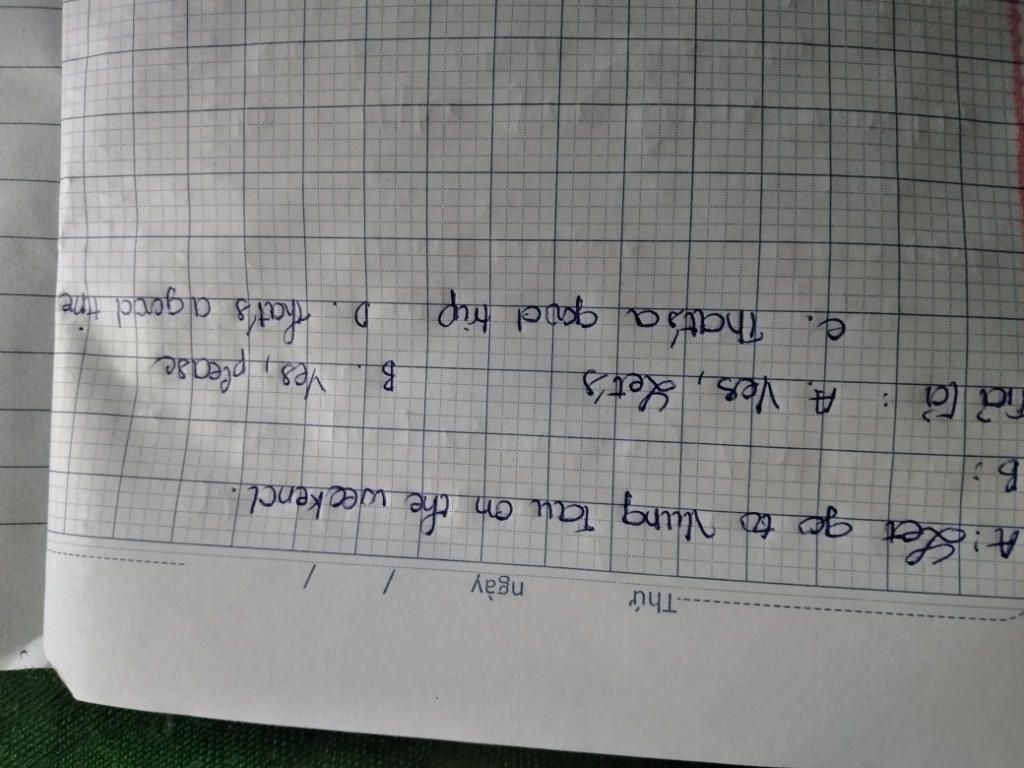 Thứ ngày / /
A: Let go to Vung Tau on the weekend.
B:
: A. Yes, Let's B. Yes, please
C. That's a good trip D. That's a good time